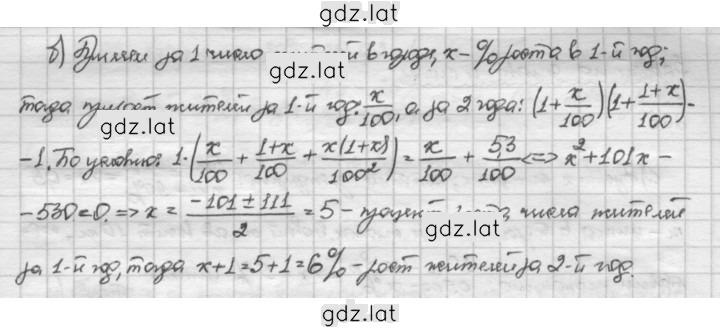 gdz.lat
б) Примем за 1 число в городе, x - % роста в 1-й год;
gdz.lat
тогда прирост жителей за 1-й год: x/100, а за 2 года: (1 + x/100)(1 + (1+x)/100) -
gdz.lat
- 1. По условию: 1·(x/100 + (1+x)/100 + x(1+x)/100²) = x/100 + 5,3/100 <=> x² + 101x -
- 530 = 0. => x = (-101 ± 111)/2 = 5 - процент числа жителей
gdz.lat
за 1-й год, тогда x+1 = 5+1 = 6% - рост жителей за 2-й год.
gdz.lat